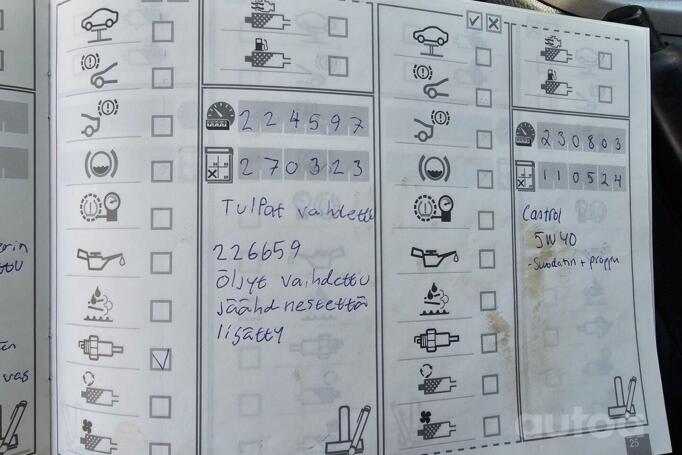 224597
270323
Tulpat vaihdettu
226659
öljyt vaihdettu
jäähd nestettä
lisätty
230803
110524
Castrol
5W40
-Suodatin + proppu
25
autoe